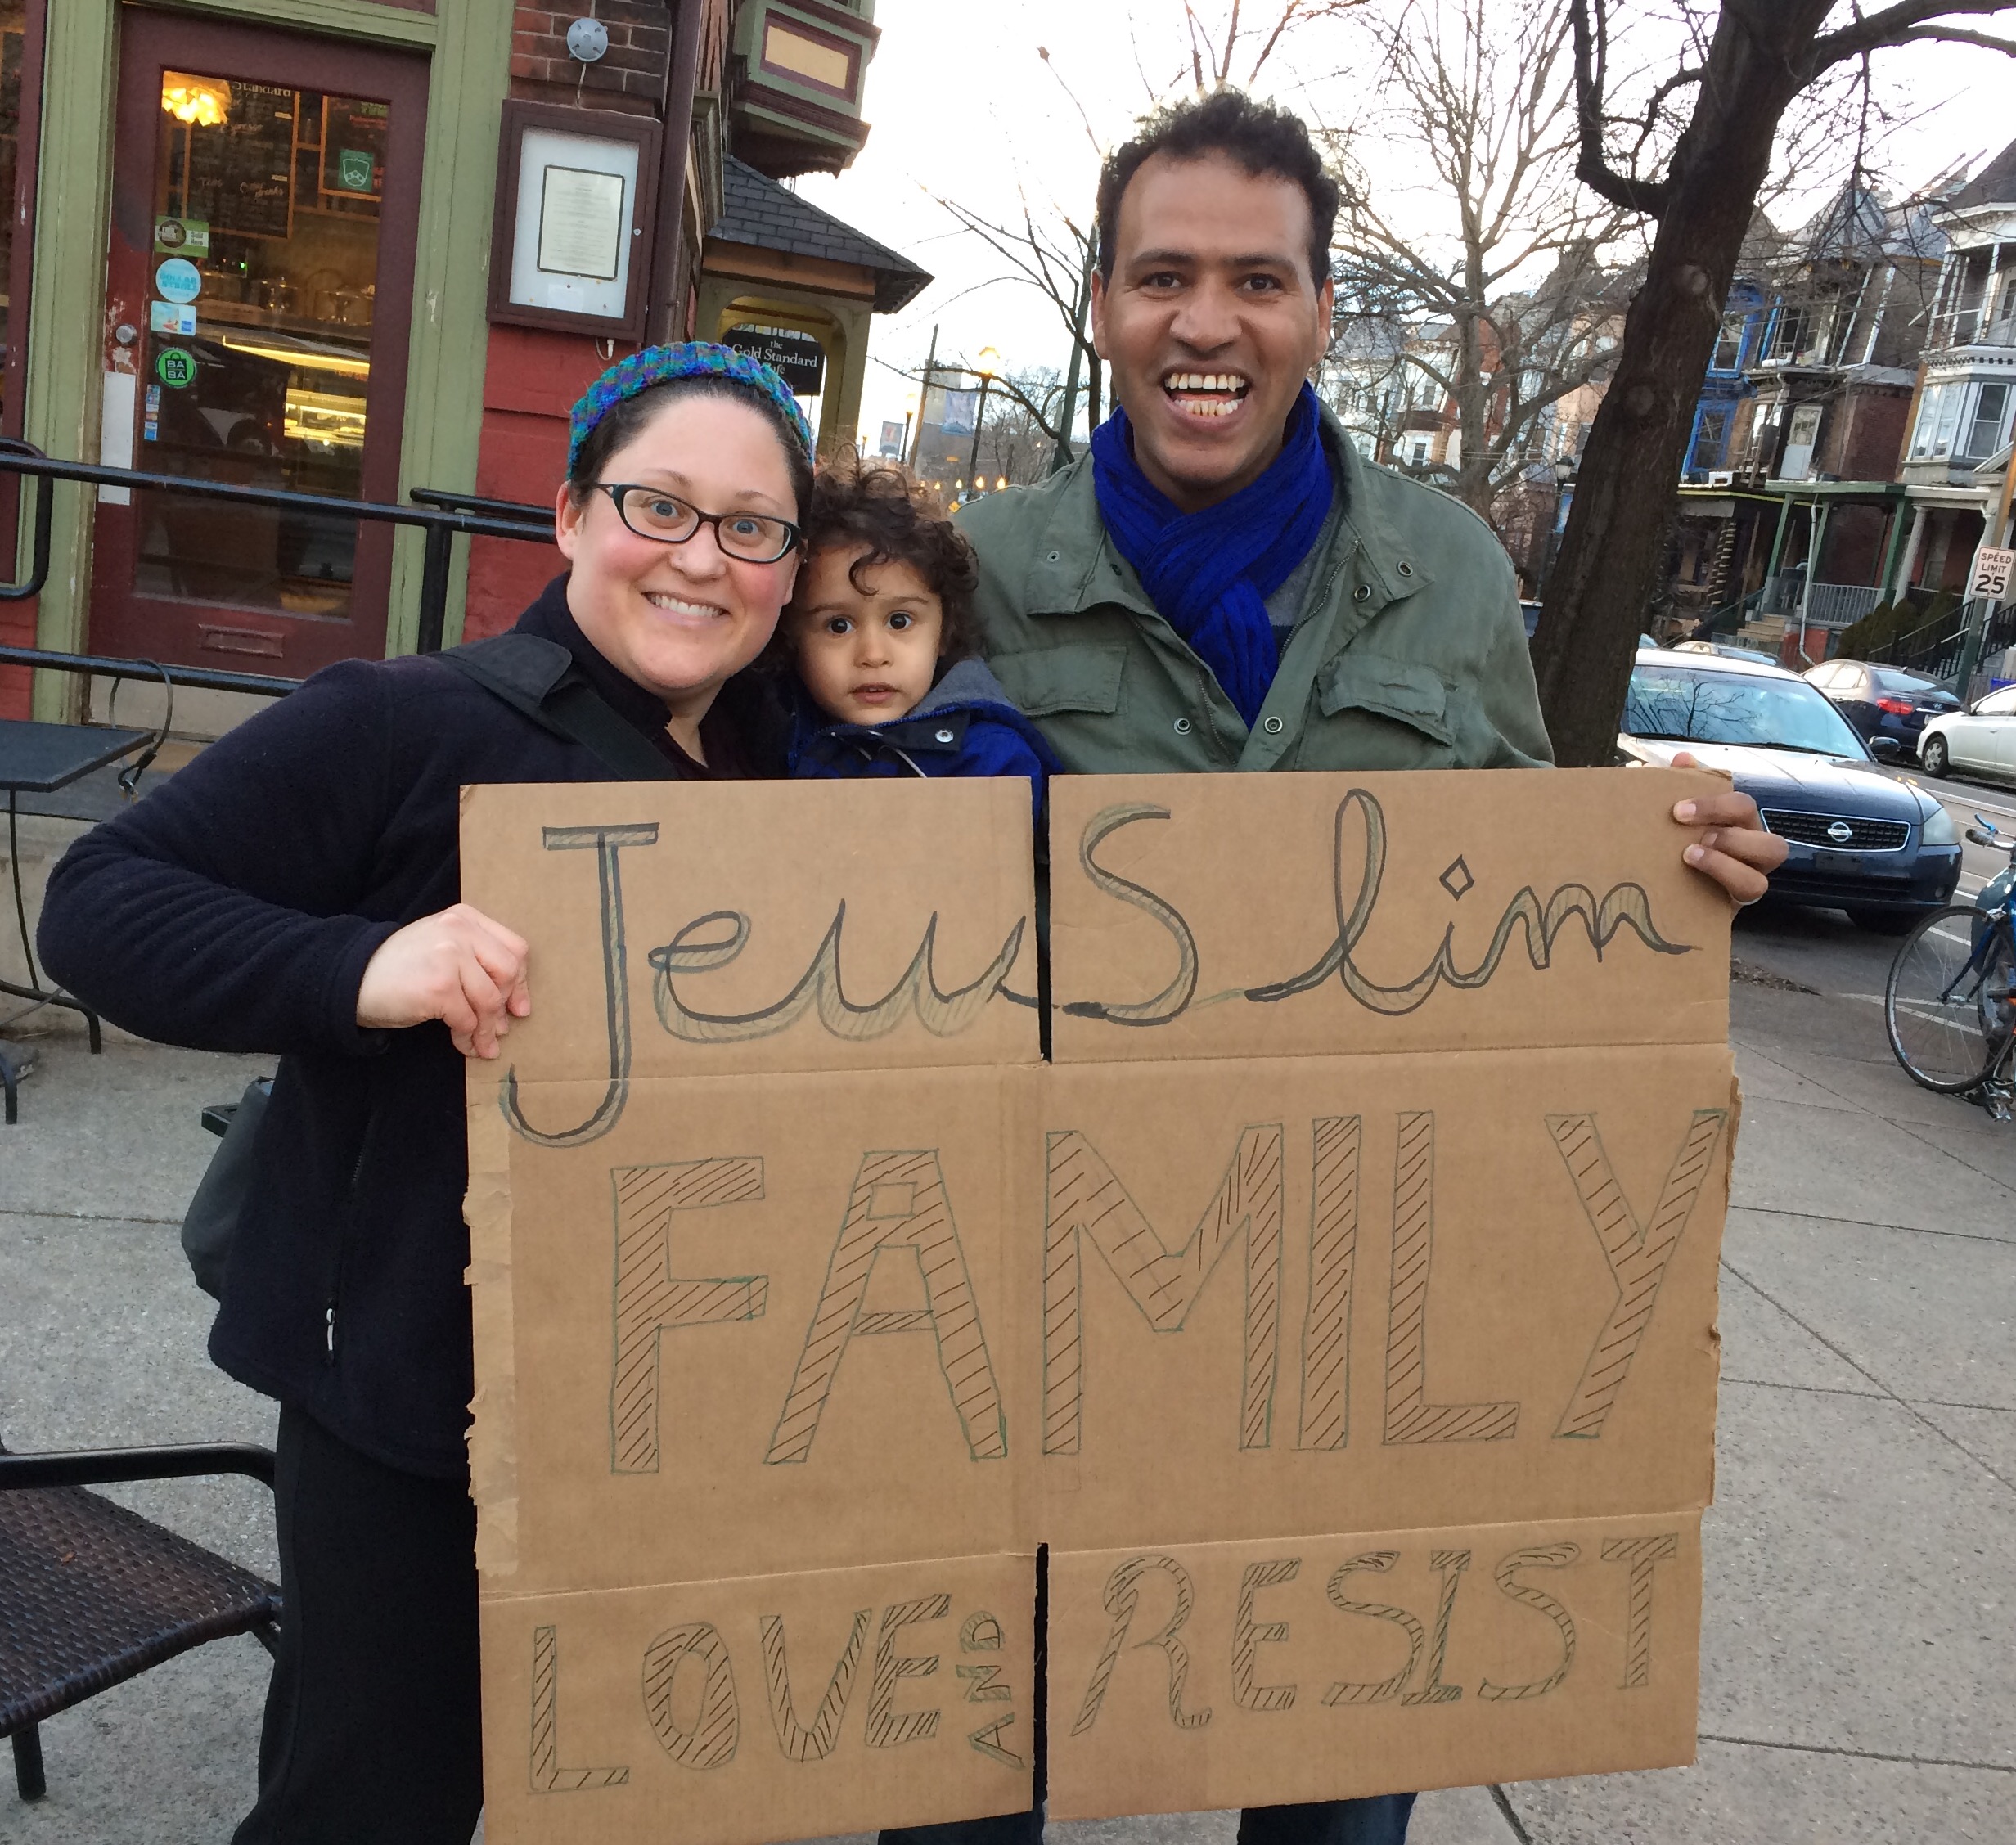 Standard
the
Gold Standard
Cafe
BA
BA
SPEED
LIMIT
25
JewSlim
FAMILY
LOVE AND RESIST